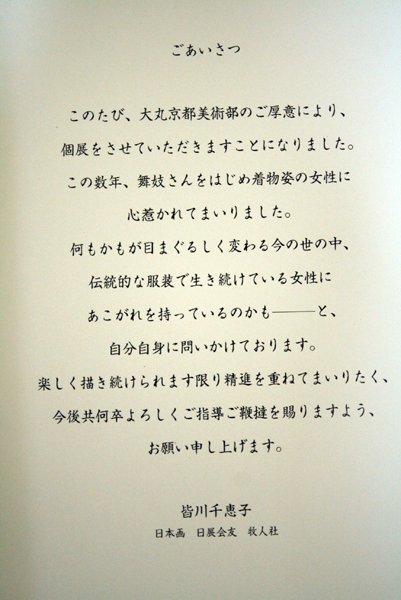 ごあいさつ
このたび、大丸京都美術部のご厚意により、
個展をさせていただきますことになりました。
この数年、舞妓さんをはじめ着物姿の女性に
心惹かれてまいりました。
何もかもが目まぐるしく変わる今の世の中、
伝統的な服装で生き続けている女性に
あこがれを持っているのかも———と、
自分自身に問いかけております。
楽しく描き続けられます限り精進を重ねてまいりたく、
今後共何卒よろしくご指導ご鞭撻を賜りますよう、
お願い申し上げます。
皆川千恵子
日本画　日展会友　牧人社